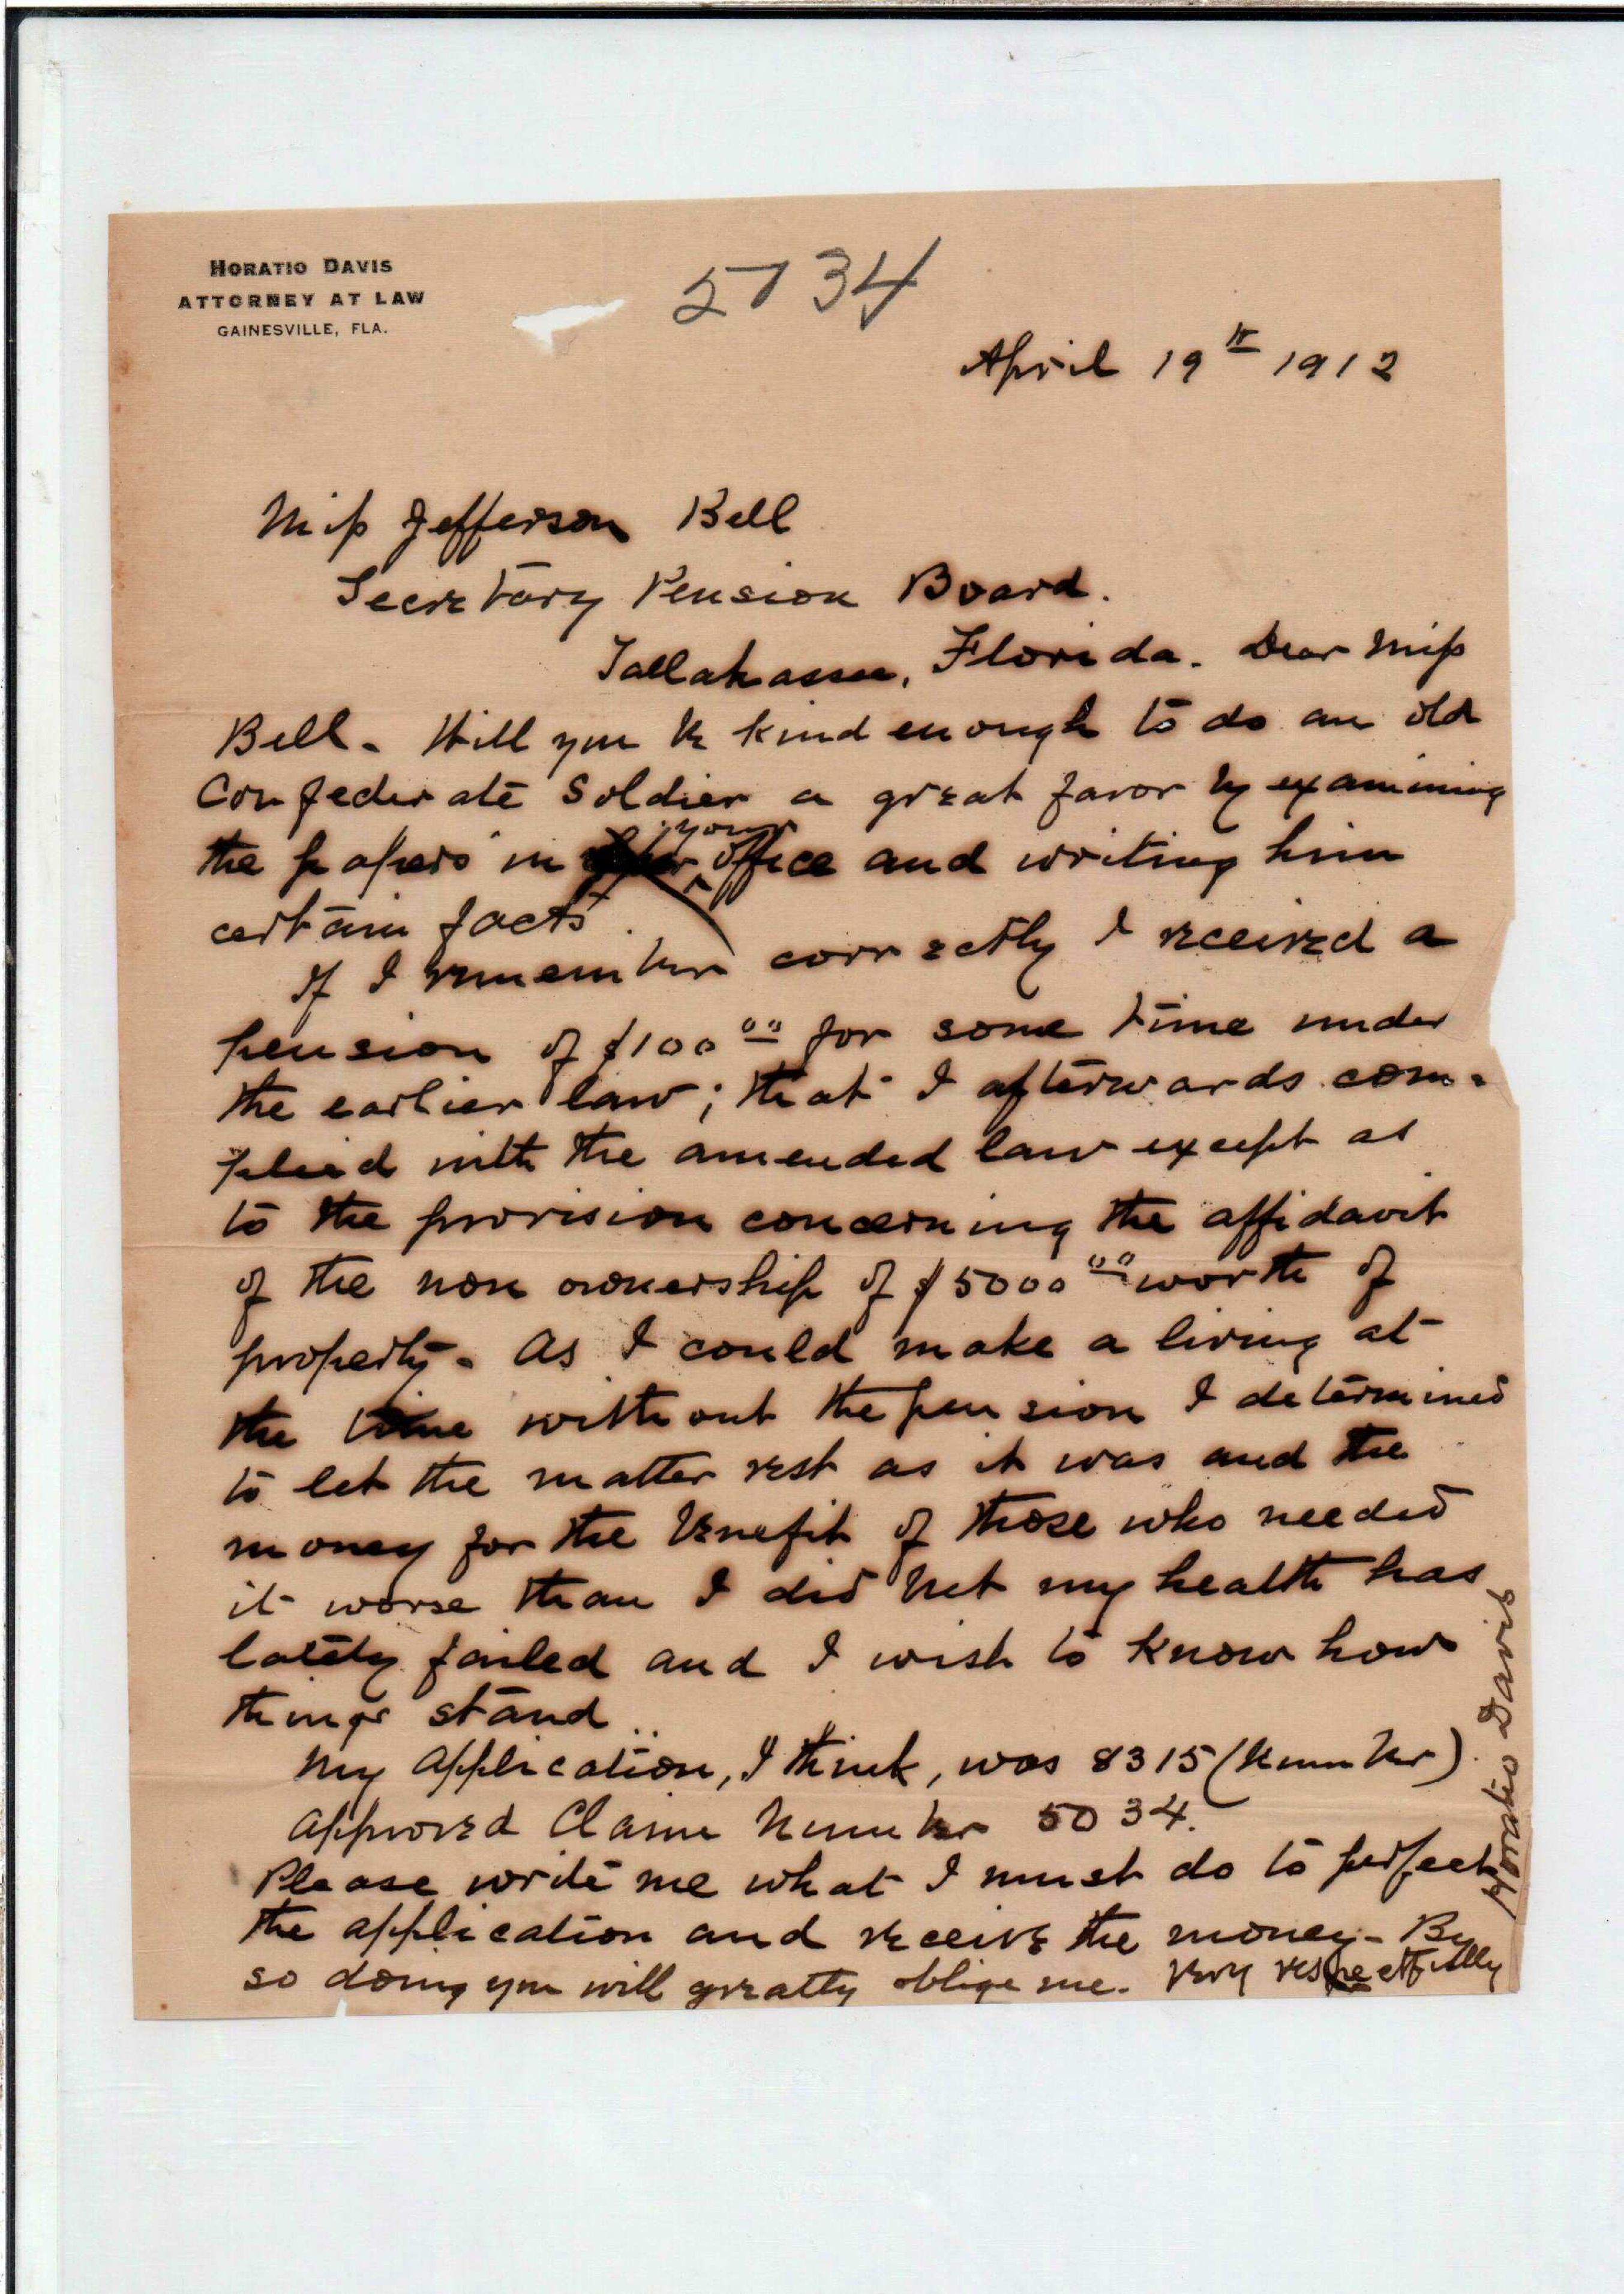 HORATIO DAVIS
ATTORNEY AT LAW
GAINESVILLE, FLA.
5034
April 19th 1912
Miss Jefferson Bell
Secretary Pension Board.
Tallahassee, Florida. Dear Miss
Bell. Will you be kind enough to do an old
Confederate Soldier a great favor by examining
the papers in your office and writing him
certain facts.
If I remember correctly I received a
pension of $100 00 for some time under
the earlier law; that I afterwards com-
plied with the amended law except as
to the provision concerning the affidavit
of the non ownership of $5000 00 worth of
property. As I could make a living at
the time without the pension I determined
to let the matter rest as it was and the
money for the benefit of those who needed
it worse than I did but my health has
lately failed and I wish to know how
things stand.
My application, I think, was 8315 (Number).
Approved Claim Number 5034.
Please write me what I must do to perfect
the application and receive the money. By
so doing you will greatly oblige me. Very respectfully
Horatio Davis